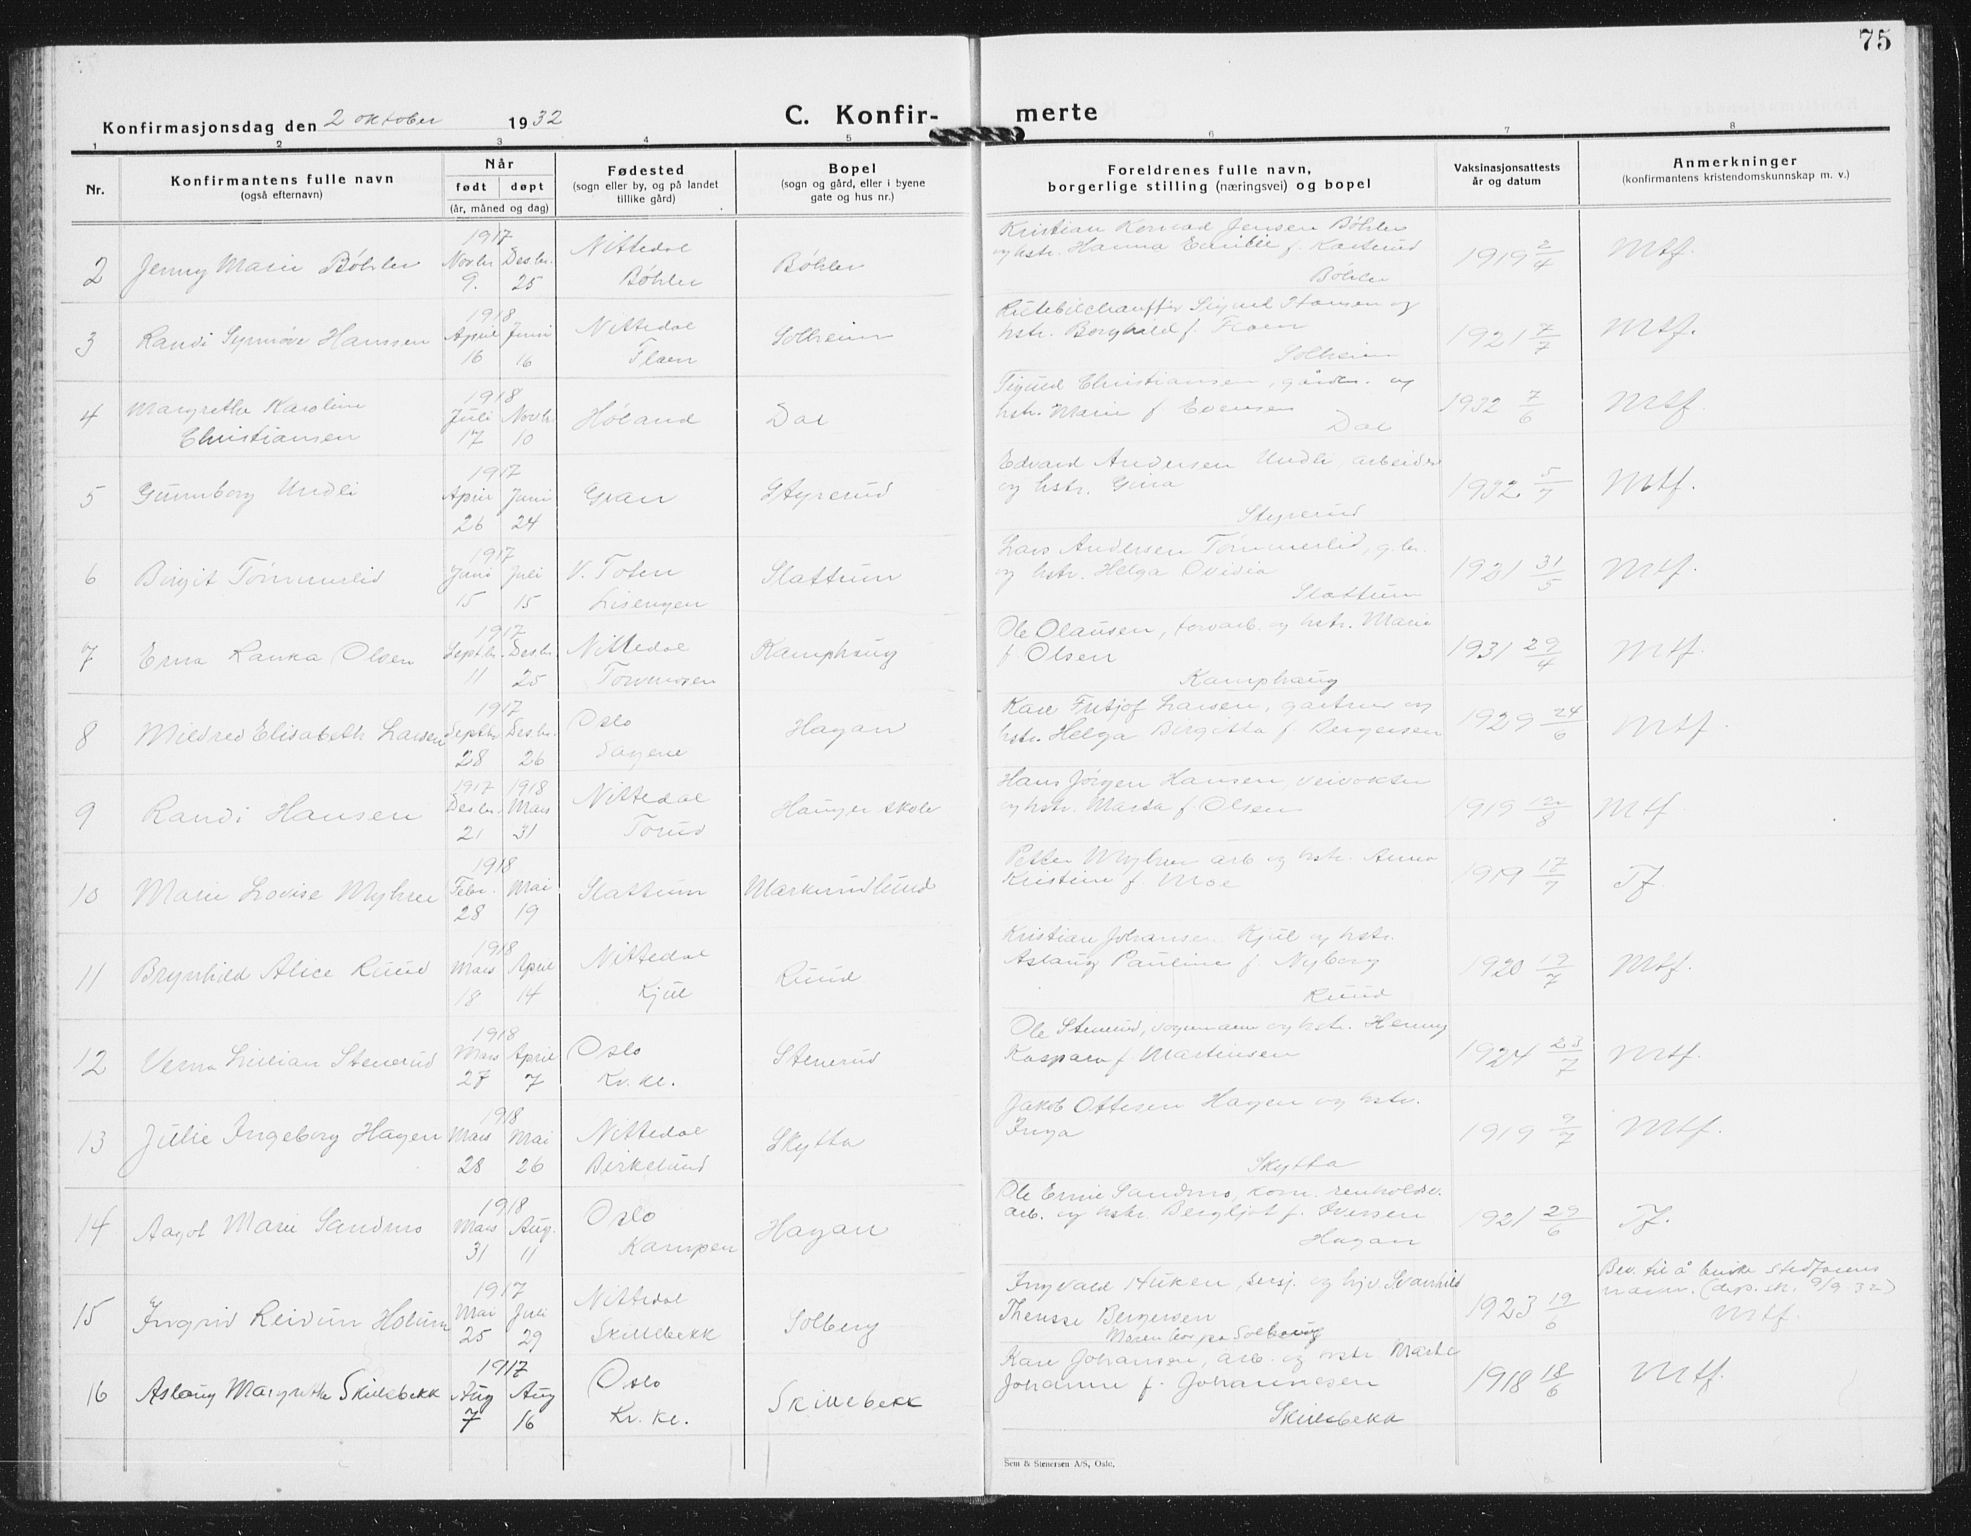 75
Konfirmasjonsdag den 2 oktober 1932
C. Konfirmerte
1 2 3 4 5 6 7 8
Nr.
Konfirmantens fulle navn
(også efternavn)
Når
født døpt
(år, måned og dag)
Fødested
(sogn eller by, og på landet
tillike gård)
Bopel
(sogn og gård, eller i byene
gate og hus nr.)
Foreldrenes fulle navn,
borgerlige stilling (næringsvei) og bopel
Vaksinasjonsattests
år og datum
Anmerkninger
(konfirmantens kristendomskunnskap m. v.)
2 Jenny Marie Bøhler
1917
Novbr. Desbr.
9. 25
Nittedal
Bøhler
Bøhler
Kristian Konrad Jensen Bøhler
og hstr. Hanna Emilie f. Kasterud
Bøhler
1919 2/4
Mtf.
3 Randi Synnøve Hanssen
1918
April Juni
16 16
Nittedal
Flaen
Solheim
Rutebilchauffør Sigurd Hansen og
hstr. Borghild f. Flaen
Solheim
1921 7/7
Mtf.
4 Margrethe Karoline
Christiansen
1918
Juli Novbr.
17 10
Høland
Dal
Sigurd Christiansen, gårdbr. og
hstr. Marie f. Evensen
Dal
1932 7/6
Mtf.
5 Gunnborg Undli
1917
April Juni
26 24
Gran
Styrerud
Edvard Andersen Undli, arbeider
og hstr. Gina
Styrerud
1932 5/7
Mtf.
6 Birgit Tømmerlid
1917
Juni Juli
15 15
V. Toten
Lisengen
Slattum
Lars Andersen Tømmerlid, g.br.
og hstr. Helga Ovidia
Slattum
1921 31/5
Mtf.
7 Erna Ranka Olsen
1917
Septbr. Desbr.
11 25
Nittedal
Torvmosen
Kamphaug
Ole Olausen, torvarb. og hstr. Marie
f. Olsen
Kamphaug
1931 29/4
Mtf.
8 Mildred Elisabeth Larsen
1917
Septbr. Desbr.
28 26
Oslo
Sagene
Hagan
Karl Fritjof Larsen, gartner og
hstr. Helga Birgitta f. Bergersen
1929 24/6
Mtf
9 Randi Hansen
1917 1918
Desbr. Mars
21 31
Nittedal
Torud
Hauger skole
Hans Jørgen Hansen, veivokter
og hstr. Marta f. Olsen
1919 12/8
Mtf
10 Marie Lovise Myhrer
1918
Febr. Mai
28 19
Slattum
Markerudlund
Petter Myhrer arb. og hstr. Anna
Kristine f. Moe
1919 17/7
Tf.
11 Brynhild Alice Ruud
1918
Mars April
18 14
Nittedal
Kjul
Ruud
Kristian Johansen Kjul og hstr.
Aslaug Pauline f. Nyborg
Ruud
1920 12/7
Mtf.
12 Verna Lillian Stenerud
1918
Mars April
27 7
Oslo
Kv. kl.
Stenerud
Ole Stenerud, vognmann og hstr. Henny
Kaspara f. Martinsen
1924 23/7
Mtf.
13 Julie Ingeborg Hagen
1918
Mars Mai
28 26
Nittedal
Birkelund
Skytta
Jakob Ottesen Hagen og hstr.
Inga
Skytta
1919 9/7
Mtf.
14 Aagot Marie Sandmo
1918
Mars Aug.
31 11
Oslo
Kampen
Hagan
Ole Ernie Sandmo, kom. renholdsv.
arb. og hstr. Bergljot f. Iversen
Hagan
1921 29/6
Tf.
15 Ingrid Reidun Holum
1917
Mai Juli
25 29
Nittedal
Skillebekk
Solberg
Ingvald Huken, sersj. og hjv. Svanhild
Therese Bergersen
Moren bor på Solberg
1923 19/6
Bev. til å bruke stedfarens
navn. (dep. sk. 9/9 32)
Mtf.
16 Aslaug Margrethe Skillebekk
1917
Aug Aug
7 16
Oslo
Kv. kl.
Skillebekk
Karl Johansen, arb. og hstr. Marte
Johanne f. Johannesen
Skillebekk
1918 18/6
Mtf.
Sem & Stenersen A/S, Oslo.